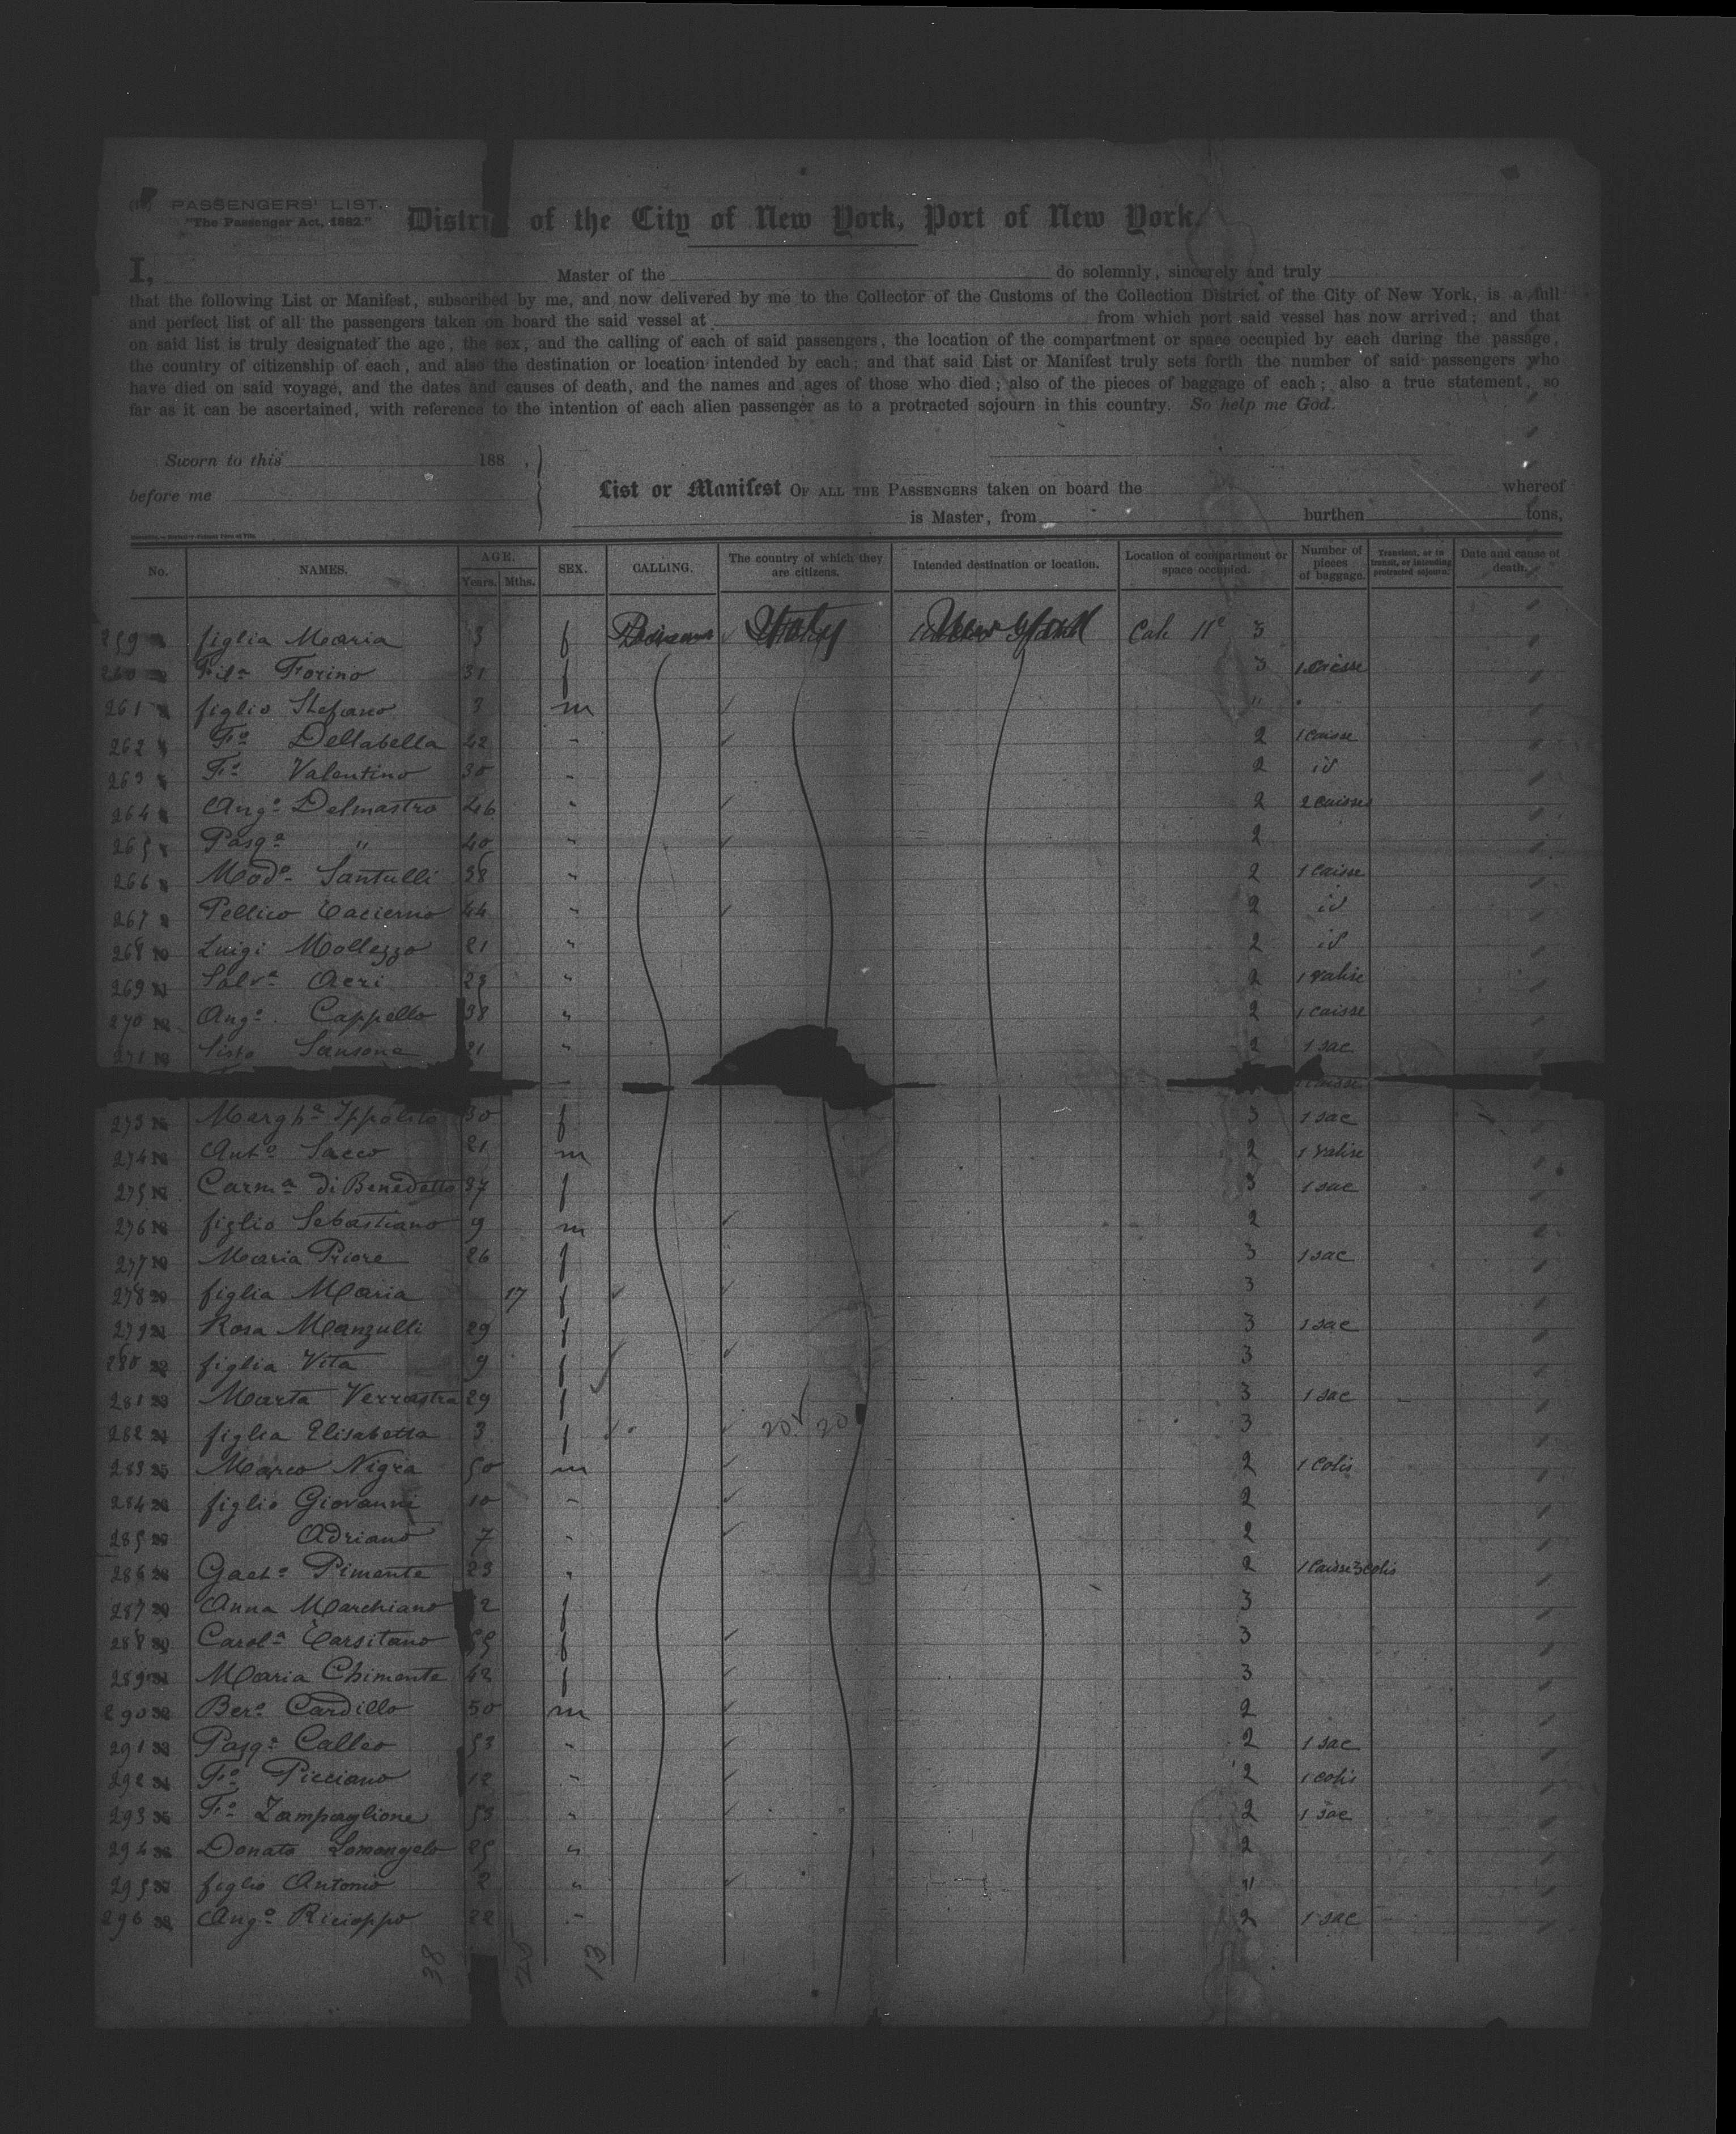 PASSENGERS' LIST.
"The Passenger Act, 1882."
District of the City of New York, Port of New York.
I, Master of the do solemnly, sincerely and truly
that the following List or Manifest, subscribed by me, and now delivered by me to the Collector of the Customs of the Collection District of the City of New York, is a full
and perfect list of all the passengers taken on board the said vessel at from which port said vessel has now arrived; and that
on said list is truly designated the age, the sex, and the calling of each of said passengers, the location of the compartment or space occupied by each during the passage,
the country of citizenship of each, and also the destination or location intended by each; and that said List or Manifest truly sets forth the number of said passengers who
have died on said voyage, and the dates and causes of death, and the names and ages of those who died; also of the pieces of baggage of each; also a true statement, so
far as it can be ascertained, with reference to the intention of each alien passenger as to a protracted sojourn in this country. So help me God.
Sworn to this 188 ,
before me
List or Manifest OF ALL THE PASSENGERS taken on board the whereof
is Master, from burthen tons,
No. NAMES. AGE. Years. Mths. SEX. CALLING. The country of which they are citizens. Intended destination or location. Location of compartment or space occupied. Number of pieces of baggage. Transient, or in transit, or intending protracted sojourn. Date and cause of death.
259 figlia Maria 3 f Italy Cab 11e 3
260 Torino 31 f 3 1 caisse
261 figlio Stefano 3 m "
262 Fo Dellabella 42 " 2 1 caisse
263 Fo Valentino 30 " 2 id
264 Ango Delmastro 46 " 2 2 caisses
265 Pasqa " 40 " 2
266 Modo Santulli 38 " 2 1 caisse
267 Pellico Cacierno 44 " 2 id
268 Luigi Mollezzo 21 " 2 id
269 Salva Acri 23 " 2 1 valise
270 Ango Cappello 38 " 2 1 caisse
271 Sisto Sansone 21 " 2 1 sac
1 caisse
273 Margha Ippolito 30 f 3 1 sac
274 Anto Sacco 21 m 2 1 valise
275 Carma di Benedetto 37 f 3 1 sac
276 figlio Sebastiano 9 m 2
277 Maria Priore 26 f 3 1 sac
278 figlia Maria 17 f 3
279 Rosa Manzulli 29 f 3 1 sac
280 figlia Vita 9 f 3
281 Marta Verrastra 29 f 3 1 sac
282 figlia Elisabetta 3 f 20 20 3
283 Marco Nigra 50 m 2 1 colis
284 figlio Giovanni 10 " 2
285 Adriano 7 " 2
286 Gaeto Pimente 23 " 2 1 caisse 3 colis
287 Anna Marchiano 2 f 3
288 Carola Tarsitano f 3
289 Maria Chimente 42 f 3
290 Bero Cardillo 50 m 2
291 Pasqe Calleo 53 " 2 1 sac
292 Fo Picciano 12 " 2 1 colis
293 Fo Zampaglione 53 " 2 1 sac
294 Donato Lomangelo 25 " 2
295 figlio Antonio 2 " "
296 Ango Ricioppo 22 " 2 1 sac
38 13